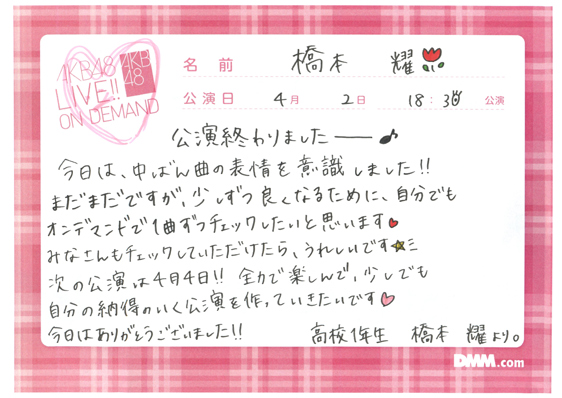 AKB48
LIVE!!
ON DEMAND
AKB
48
名前 橋本 耀
公演日 4月 2日 18:30 公演
公演終わりましたー♪
今日は、中ばん曲の表情を意識しました!!
まだまだですが、少しずつ良くなるために、自分でも
オンデマンドで1曲ずつチェックしたいと思います
みなさんもチェックしていただけたら、うれしいです
次の公演は4月4日!! 全力で楽しんで、少しでも
自分の納得のいく公演を作っていきたいです
今日はありがとうございました!! 高校1年生 橋本 耀より。
DMM.com